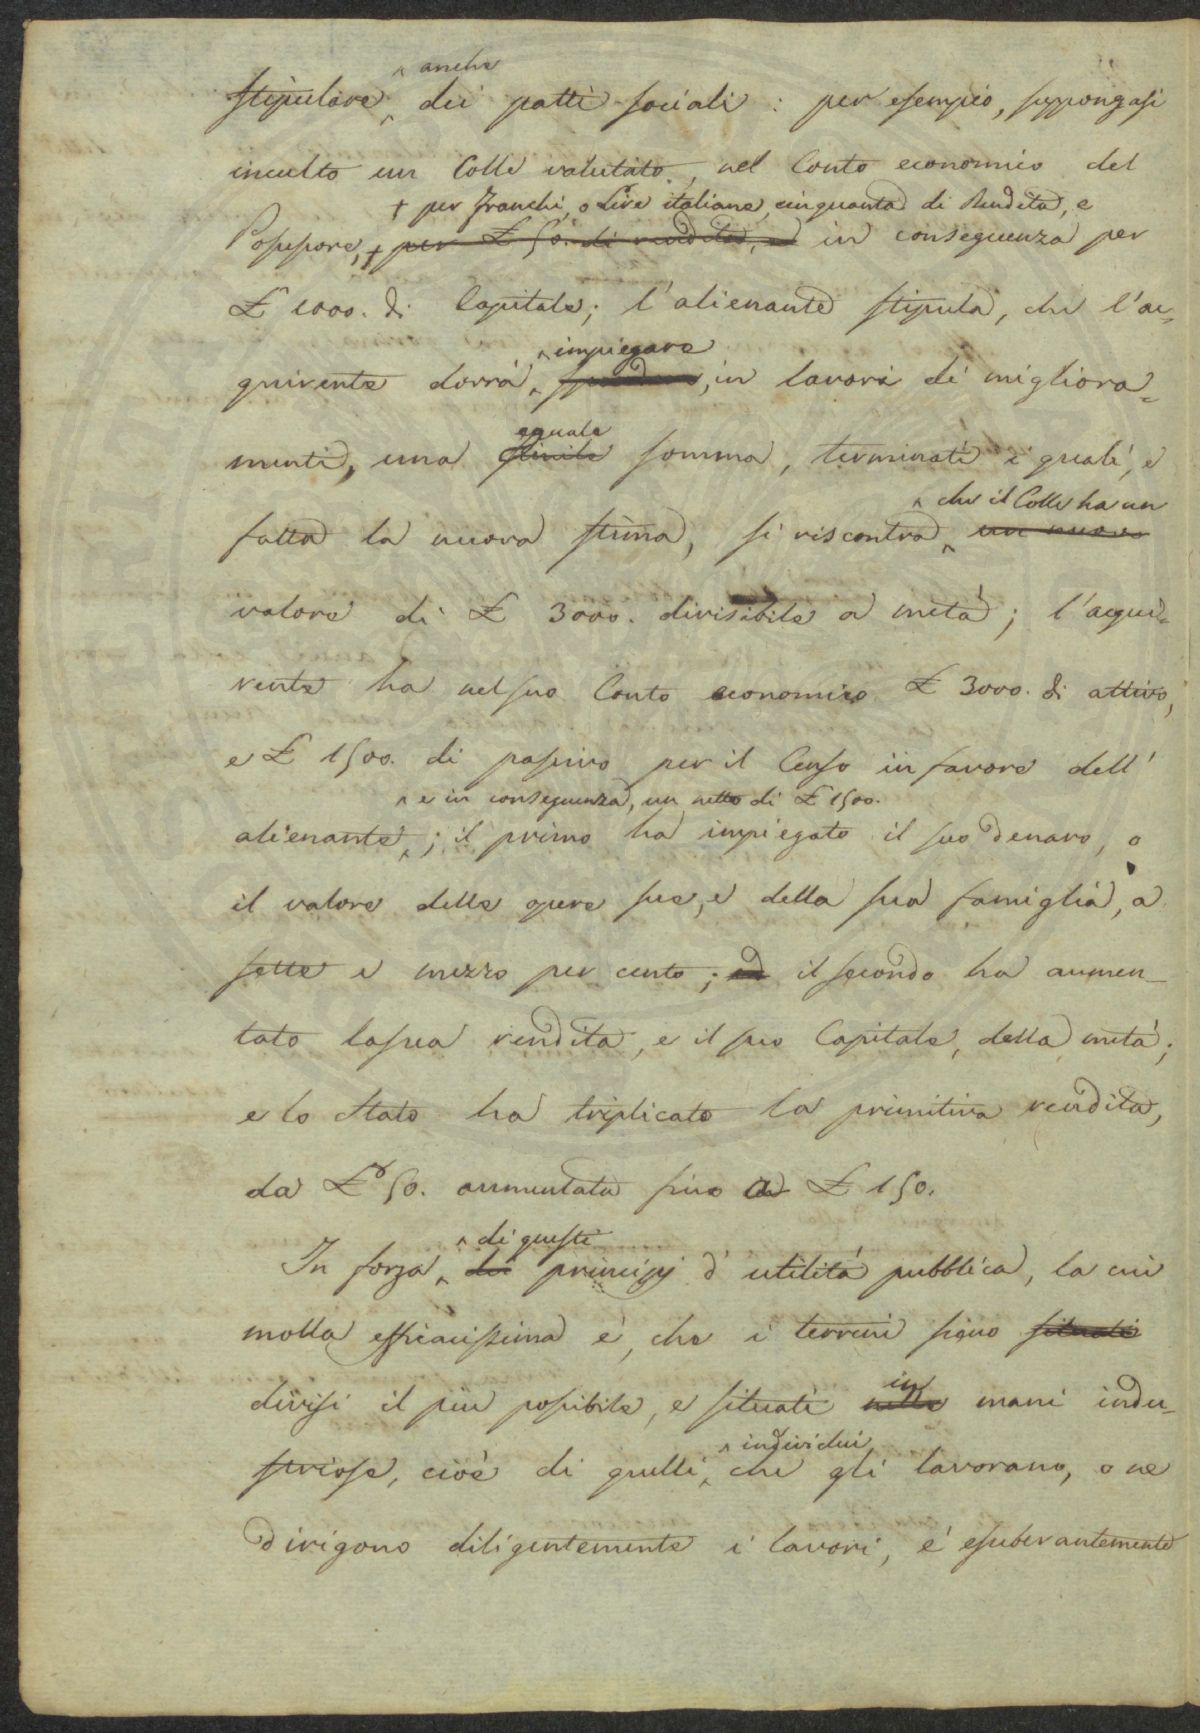 ^ anche
stipulare ^ dei patti sociali : per esempio, suppongasi
inculto un Colle valutato, nel Conto economico del
+ per Franchi, o Lire italiane, cinquanta di Rendita, e
Possessore, + per £ 50. di rendita, ed in conseguenza per
£ 1000. di Capitale; l'alienante stipula, che l'ac=
^ impiegare
quirente dovrà, ^ , in lavori di migliora=
eguale
menti, una simile somma, terminati i quali, e
^ che il Colle ha un
fatta la nuova stima, si riscontra ^ un nuovo
valore di £ 3000. divisibile a metà; l'acqui=
rente ha nel suo Conto economico £ 3000. di attivo,
e £ 1500. di passivo per il Censo in favore dell'
^ e in conseguenza, un netto di £ 1500.
alienante ^ ; il primo ha impiegato il suo denaro, o
il valore delle opere sue, e della sua famiglia, a
sette e mezzo per cento; ed il secondo ha aumen_
tato la sua rendita, e il suo Capitale, della metà;
e lo Stato ha triplicato la primitiva rendita,
da £ 50. aumentata fino a £ 150.
^ di questi
In forza ^ dei principj d'utilità pubblica, la cui
molla efficacissima è, che i terreni sieno situati
divisi il più possibile, e situati
in
nelle mani indu=
^ individui
striose, cioè di quelli, ^ che gli lavorano, o ne
dirigono diligentemente i lavori, è esuberantemente